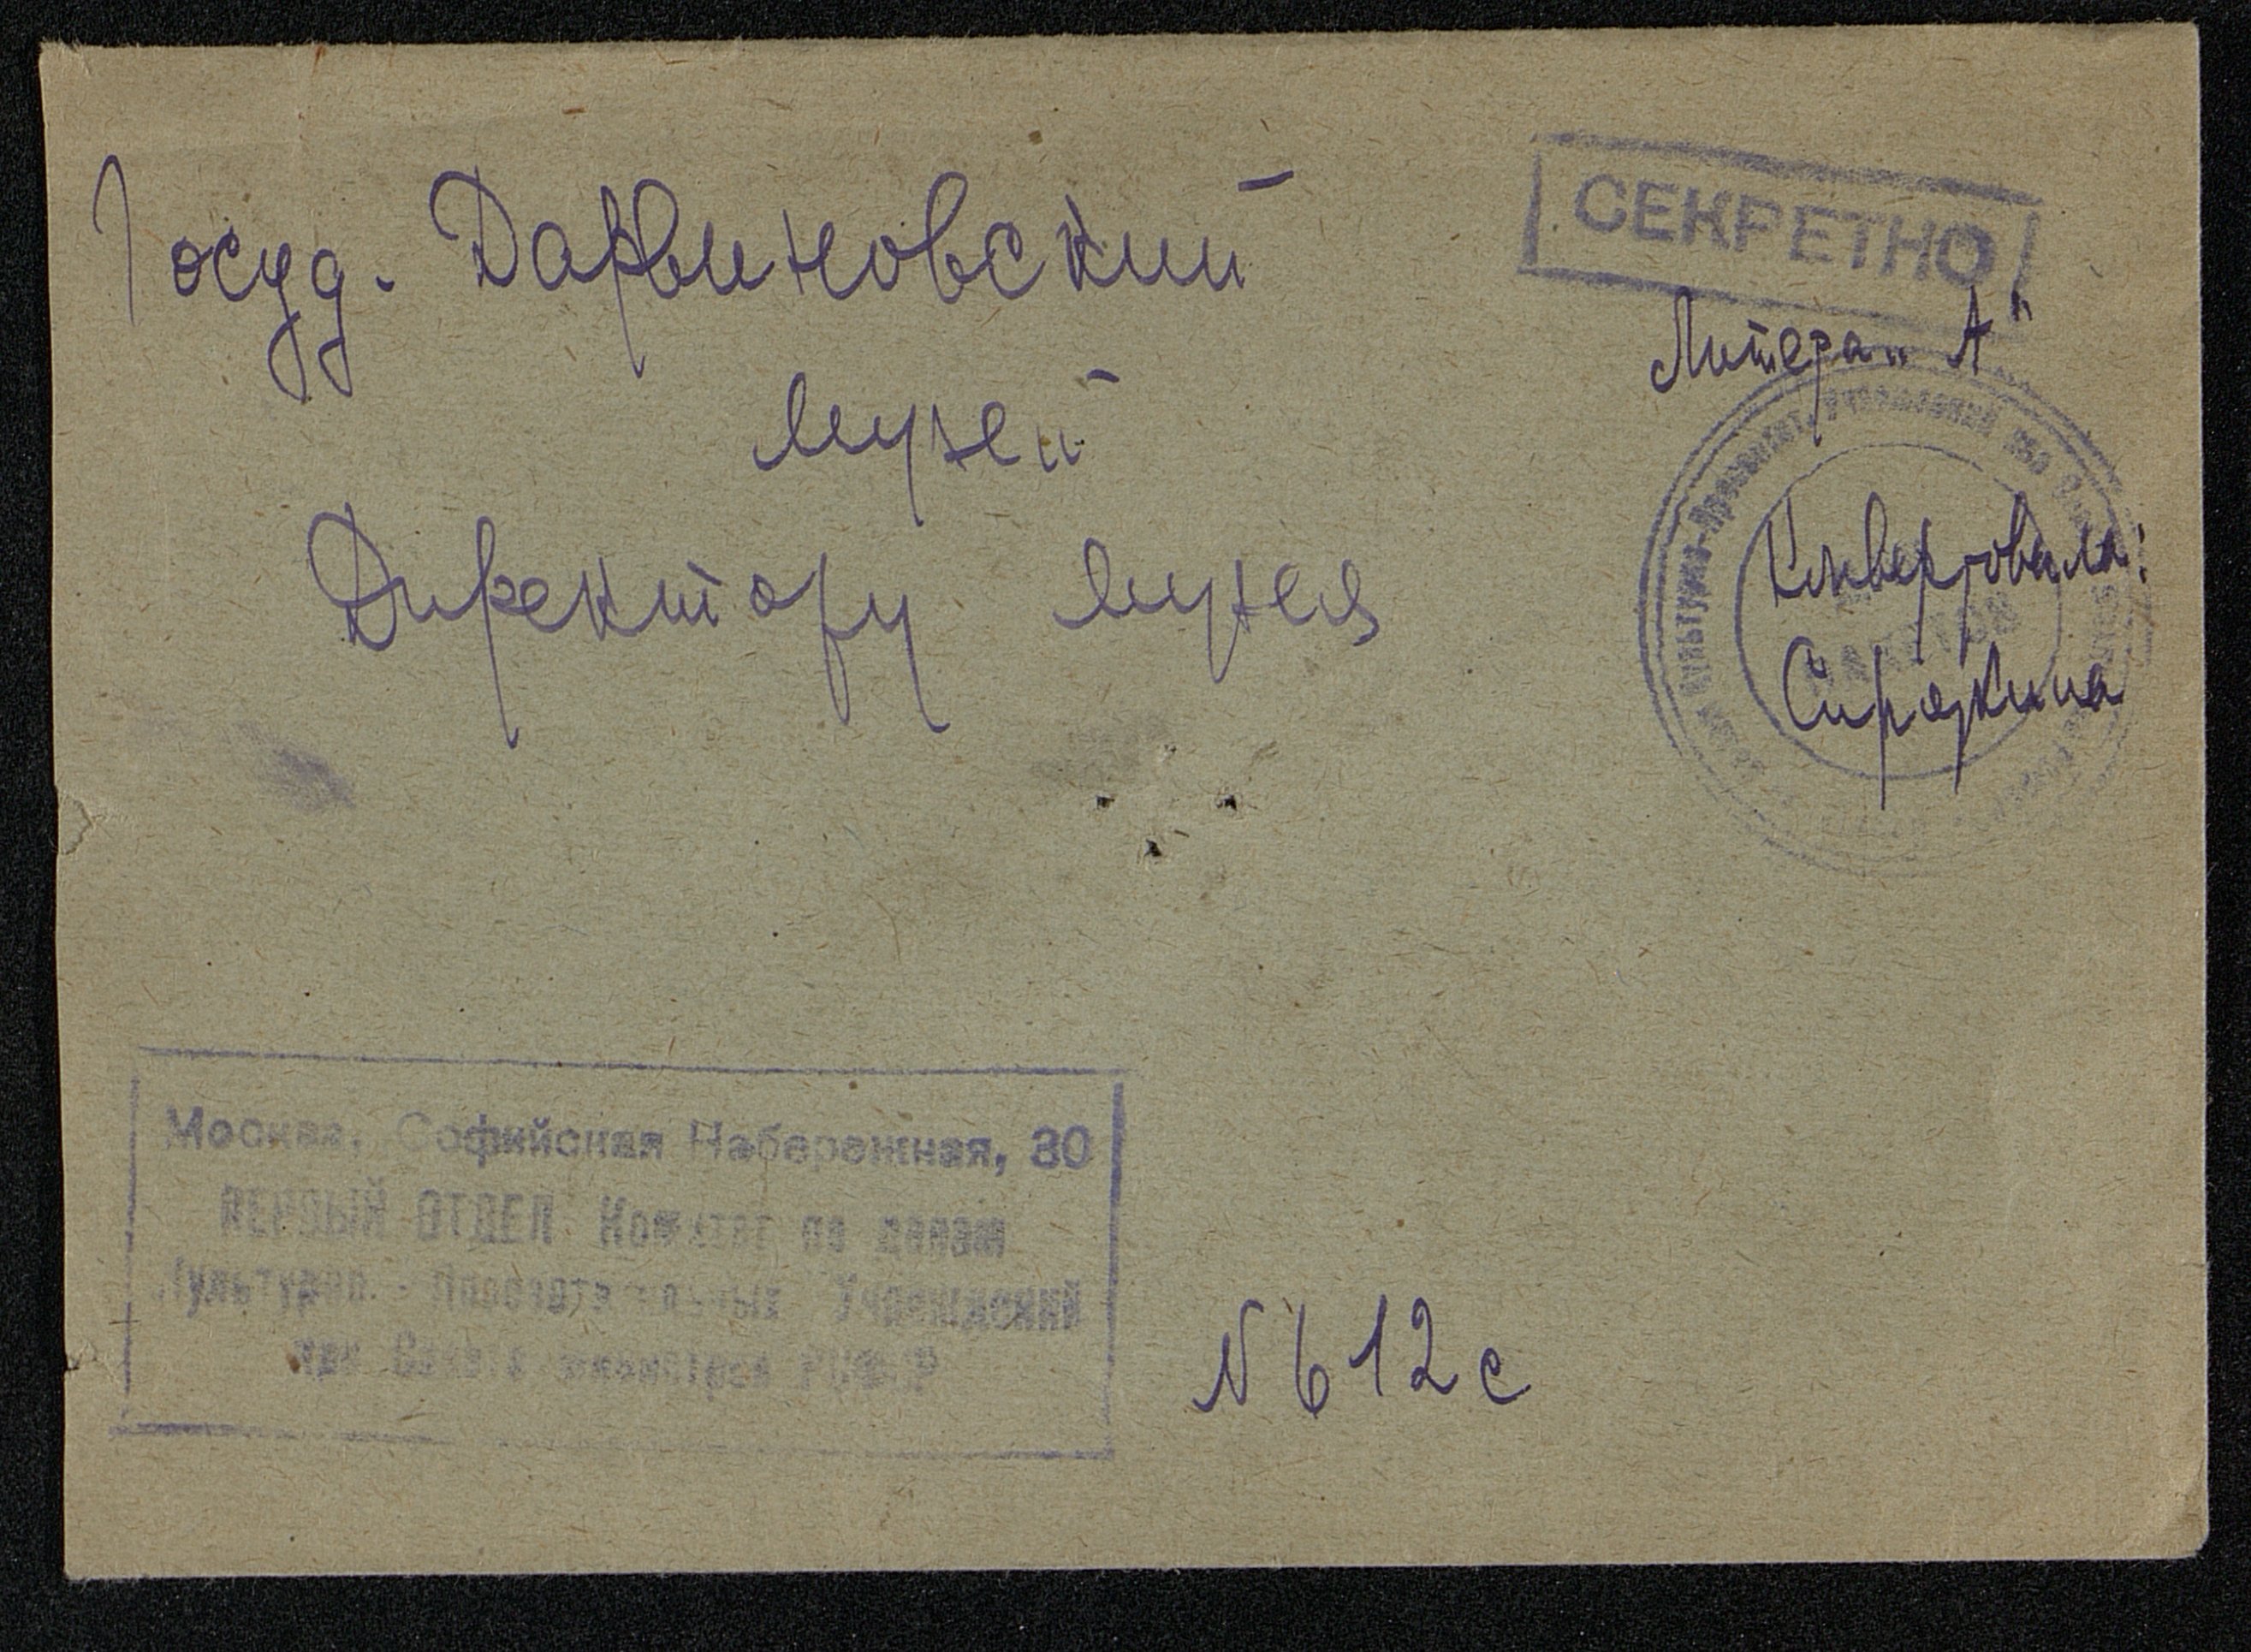 Госуд. Дарвиновский
музей
Директору музея
СЕКРЕТНО
Литера „А"
Конвертовала:
Москва, Софийская Набережная, 30
ПЕРВЫЙ ОТДЕЛ Комитет по делам
Культурно - Просветительных Учреждений
при Совете министров РСФСР
№ 612с